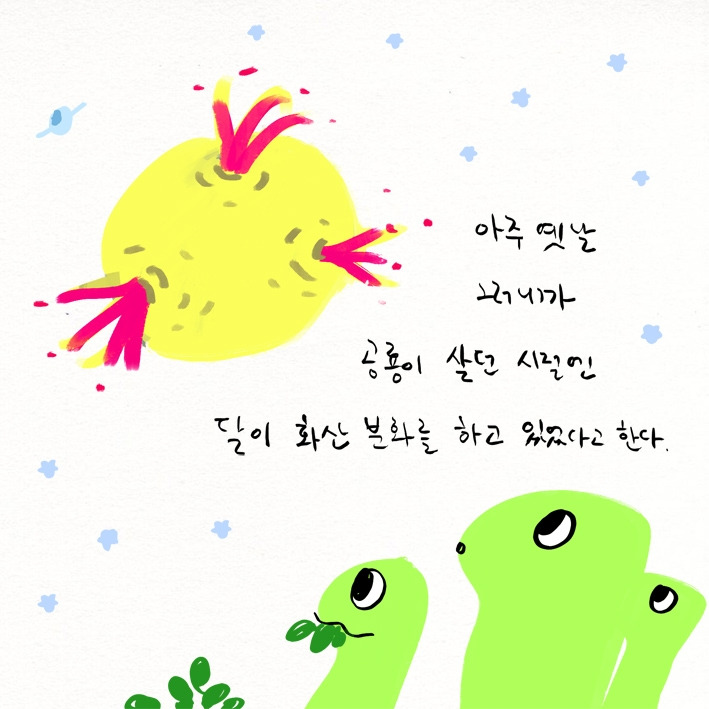 아주 옛날
그러니까
공룡이 살던 시절엔
달이 화산 분화를 하고 있었다고 한다.